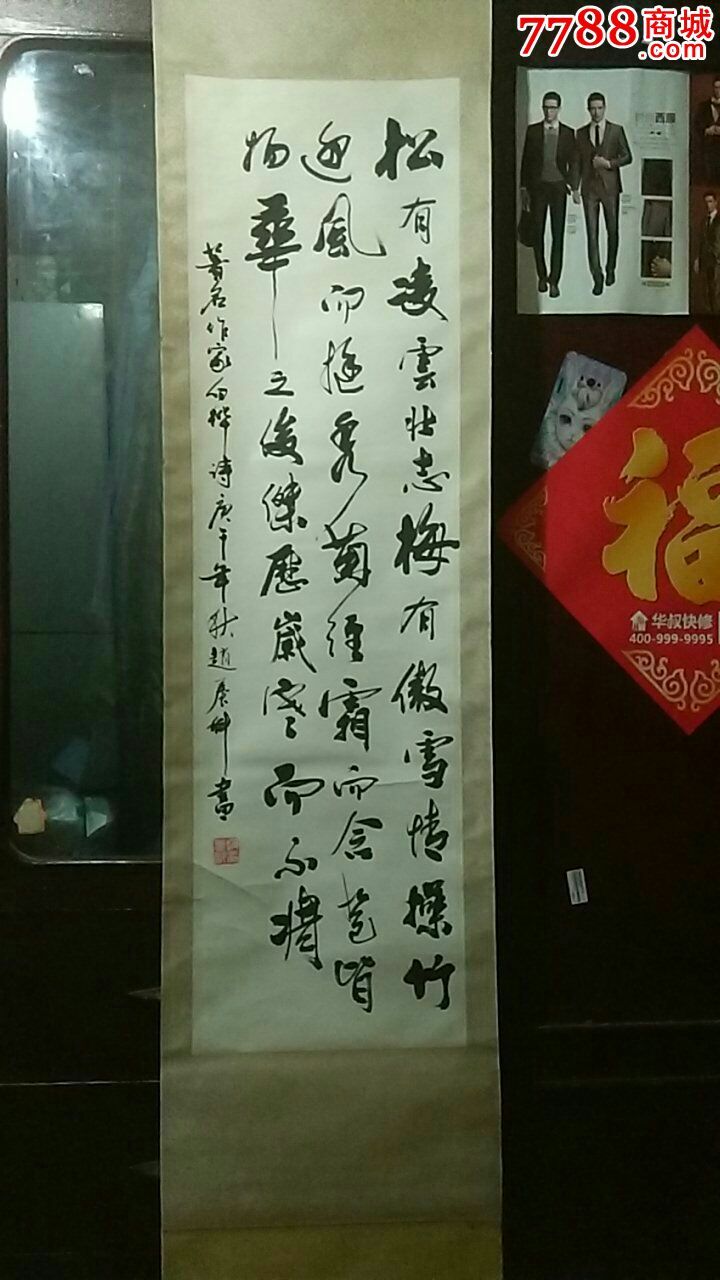 7788商城
.com
西服
松有凌雲壮志梅有傲雪情操竹
迎風而挺秀菊經霜而含苞皆
物華之俊傑歷嚴寒而不凋
著名作家白桦诗庚午年秋趙
書
福
华叔快修
400-999-9995